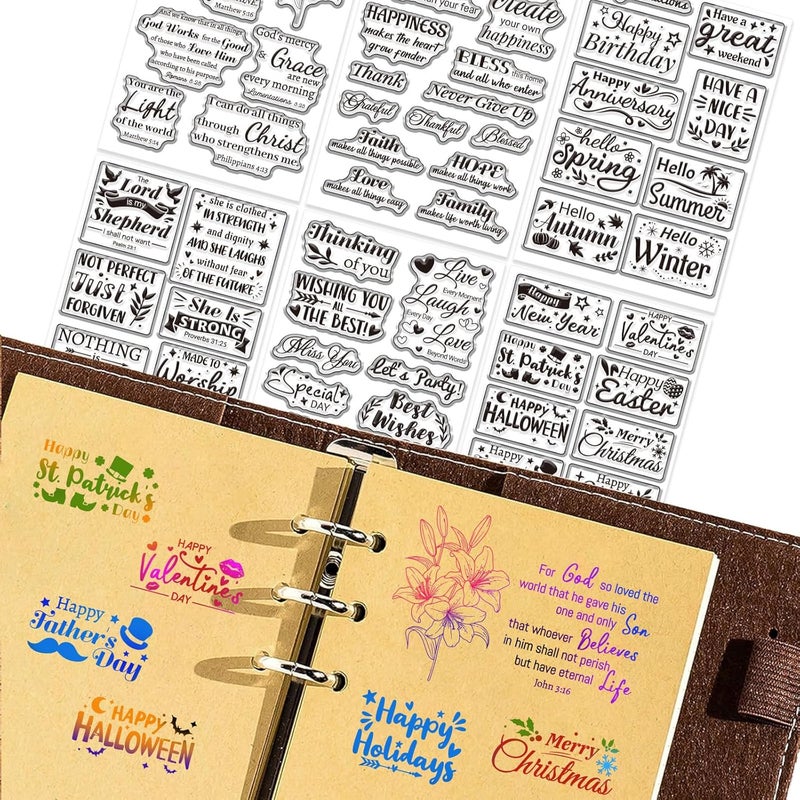 Matthew 5:16
And we know that in all things
God Works for the Good
of those who Love Him
who have been called
according to his purpose
Romans 8:28
God's mercy
& Grace
are new
every morning
Lamentations 3:23
You are the
Light
of the world
Matthew 5:14
I can do all things
through Christ
who strengthens me
Philippians 4:13
HAPPINESS
makes the heart
grow fonder
Create
your own
happiness
BLESS this home
and all who enter
Thank
Never Give Up
Grateful
Thankful
Blessed
Faith
makes all things possible
HOPE
makes all things work
Love
makes all things easy
Family
makes life worth living
Happy
Birthday
Have a
great
weekend
Happy
Anniversary
HAVE A
NICE
DAY
hello
Spring
Hello
Summer
Hello
Autumn
Hello
Winter
The
Lord
is my
Shepherd
I shall not want
Psalm 23:1
she is clothed
IN STRENGTH
and dignity
AND SHE LAUGHS
without fear
OF THE FUTURE
NOT PERFECT
Just
FORGIVEN
She Is
STRONG
Proverbs 31:25
NOTHING
is
MADE TO
Worship
Thinking
of you
WISHING YOU
ALL
THE BEST!
Live
Every Moment
Laugh
Every Day
Love
Beyond Words
Miss You
Let's Party!
Special
DAY
Best
Wishes
Happy
New Year
HAPPY
Valentine's
DAY
Happy
St. Patrick's
Day
Happy
Easter
HAPPY
HALLOWEEN
Merry
Christmas
Happy
Happy
St. Patrick's
Day
HAPPY
Valentine's
DAY
Happy
Father's
Day
HAPPY
HALLOWEEN
For God so loved the
world that he gave his
one and only Son
that whoever Believes
in him shall not perish
but have eternal Life
John 3:16
Happy
Holidays
Merry
Christmas